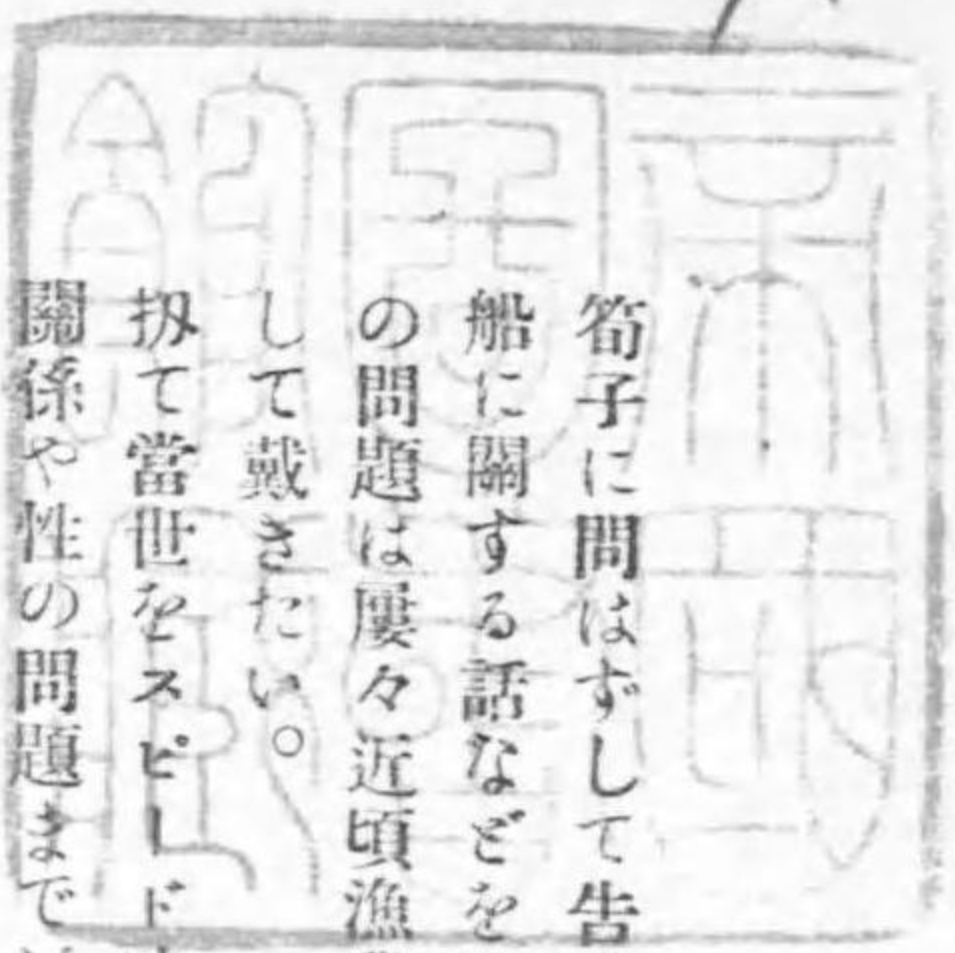 筍子に問はずして告
船に關する話などを
の問題は屢々近頃漁
して戴きたい。
扨て當世をスピード
關係や性の問題まで